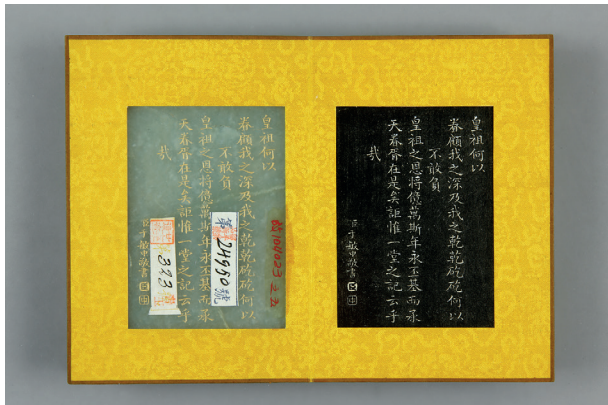 皇祖何以
眷顧我之深及我之乾乾矻矻何以
不敢負
皇祖之恩將億萬斯年永丕基而承
天眷胥在是矣詎惟一堂之記云乎
哉
臣于敏中敬書
皇祖何以
眷顧我之深及我之乾乾矻矻何以
不敢負
皇祖之恩將億萬斯年永丕基而承
天眷胥在是矣詎惟一堂之記云乎
哉
臣于敏中敬書
故100023之五
第24950號
323